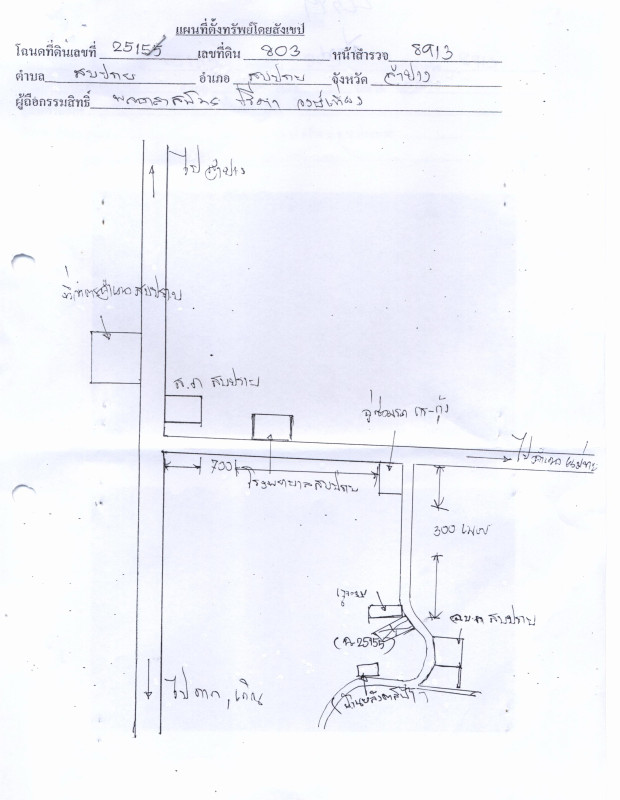 แผนที่ตั้งทรัพย์โดยสังเขป
โฉนดที่ดินเลขที่ 25155 เลขที่ดิน 803 หน้าสำรวจ 8913
ตำบล สบปราบ อำเภอ สบปราบ จังหวัด ลำปาง
ผู้ถือกรรมสิทธิ์
ไปลำปาง
ที่ว่าการอำเภอสบปราบ
ส.ภ สบปราบ
อู่ซ่อมรถ
ไปอำเภอแม่ทะ
700
โรงพยาบาลสบปราบ
300 เมตร
สบปราบ
(ฉ.25155)
ไปตาก, เถิน